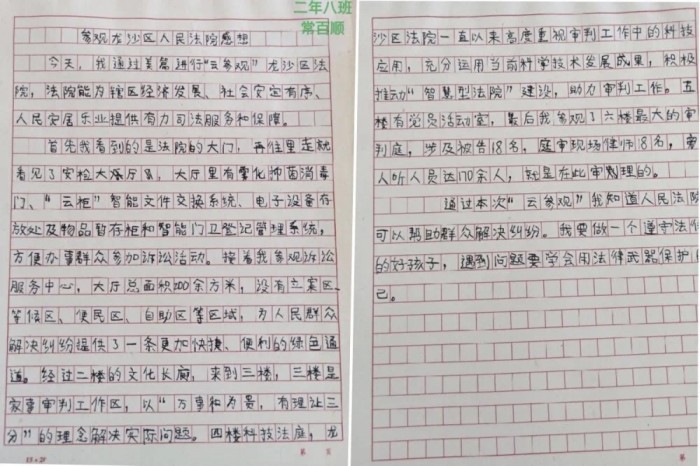 二年八班
常百顺
参观龙沙区人民法院感想
今天，我通过美篇进行“云参观”龙沙区法
院，法院能为辖区经济发展、社会安定有序、
人民安居乐业提供有力司法服务和保障。
首先我看到的是法院的大门，再往里走就
看见了安检大厅，大厅里有雾化抑菌消毒
门、“云柜”智能文件交换系统、电子设备存
放处及物品暂存柜和智能门卫登记管理系统，
方便办事群众参加诉讼活动。接着我参观诉讼
服务中心，大厅总面积100余方米，设有立案区、
等候区、便民区、自助区等区域，为人民群众
解决纠纷提供了一条更加快捷、便利的绿色通
道。经过二楼的文化长廊，来到三楼，三楼是
家事审判工作区，以“万事和为贵，有理让三
分”的理念解决实际问题。四楼科技法庭，龙
沙区法院一直以来高度重视审判工作中的科技
应用，充分运用当前科学技术发展成果，积极
推动“智慧型法院”建设，助力审判工作。五
楼有党员活动室，最后我参观了六楼最大的审
判庭，涉及被告18名，庭审现场律师18名，旁
人听人员达170余人，就是在此审理的。
通过本次“云参观”我知道人民法院
可以帮助群众解决纠纷。我要做一个遵守法
的好孩子，遇到问题要学会用法律武器保护
己。